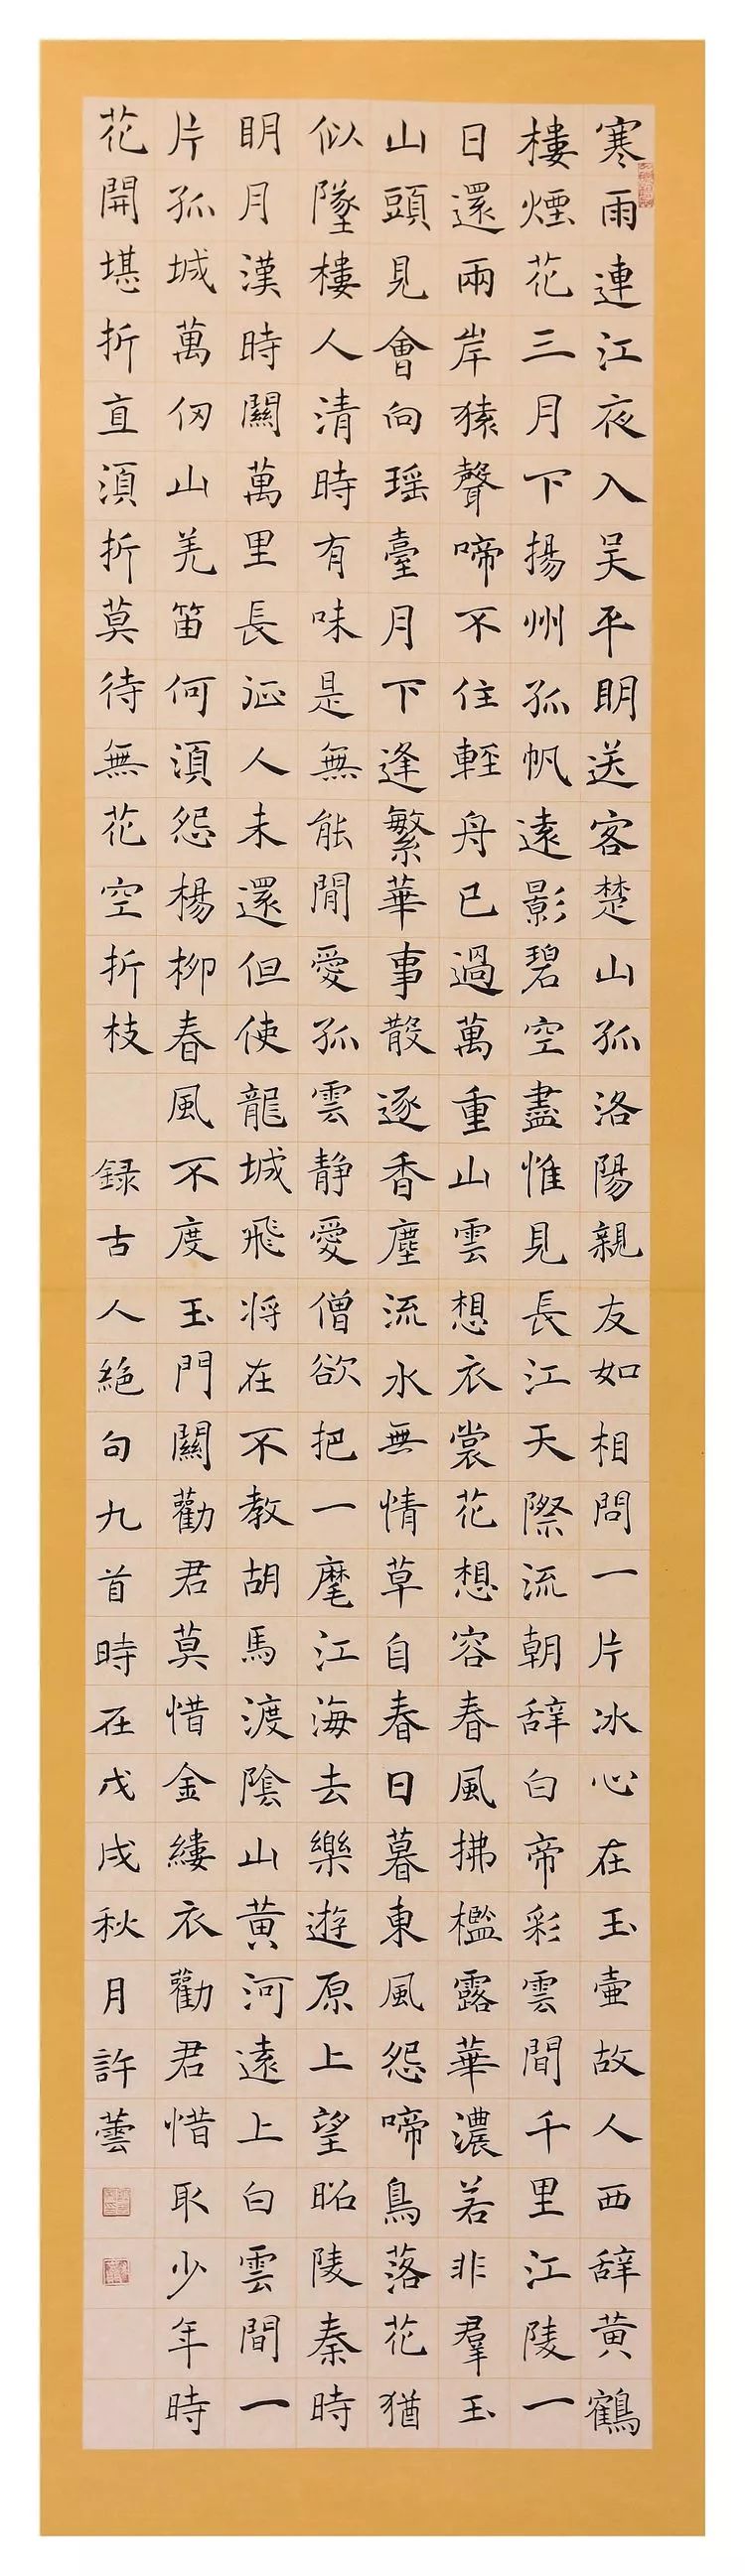 寒雨連江夜入吴平明送客楚山孤洛陽親友如相問一片冰心在玉壺故人西辭黄鶴
樓煙花三月下揚州孤帆遠影碧空盡惟見長江天際流朝辭白帝彩雲間千里江陵一
日還兩岸猿聲啼不住輕舟已過萬重山雲想衣裳花想容春風拂檻露華濃若非羣玉
山頭見會向瑶臺月下逢繁華事散逐香塵流水無情草自春日暮東風怨啼鳥落花猶
似墜樓人清時有味是無能閒愛孤雲静愛僧欲把一麾江海去樂遊原上望昭陵秦時
明月漢時關萬里長征人未還但使龍城飛将在不教胡馬渡陰山黄河遠上白雲間一
片孤城萬仞山羌笛何須怨楊柳春風不度玉門關勸君莫惜金縷衣勸君惜取少年時
花開堪折直須折莫待無花空折枝 録古人絶句九首時在戊戌秋月許蕓